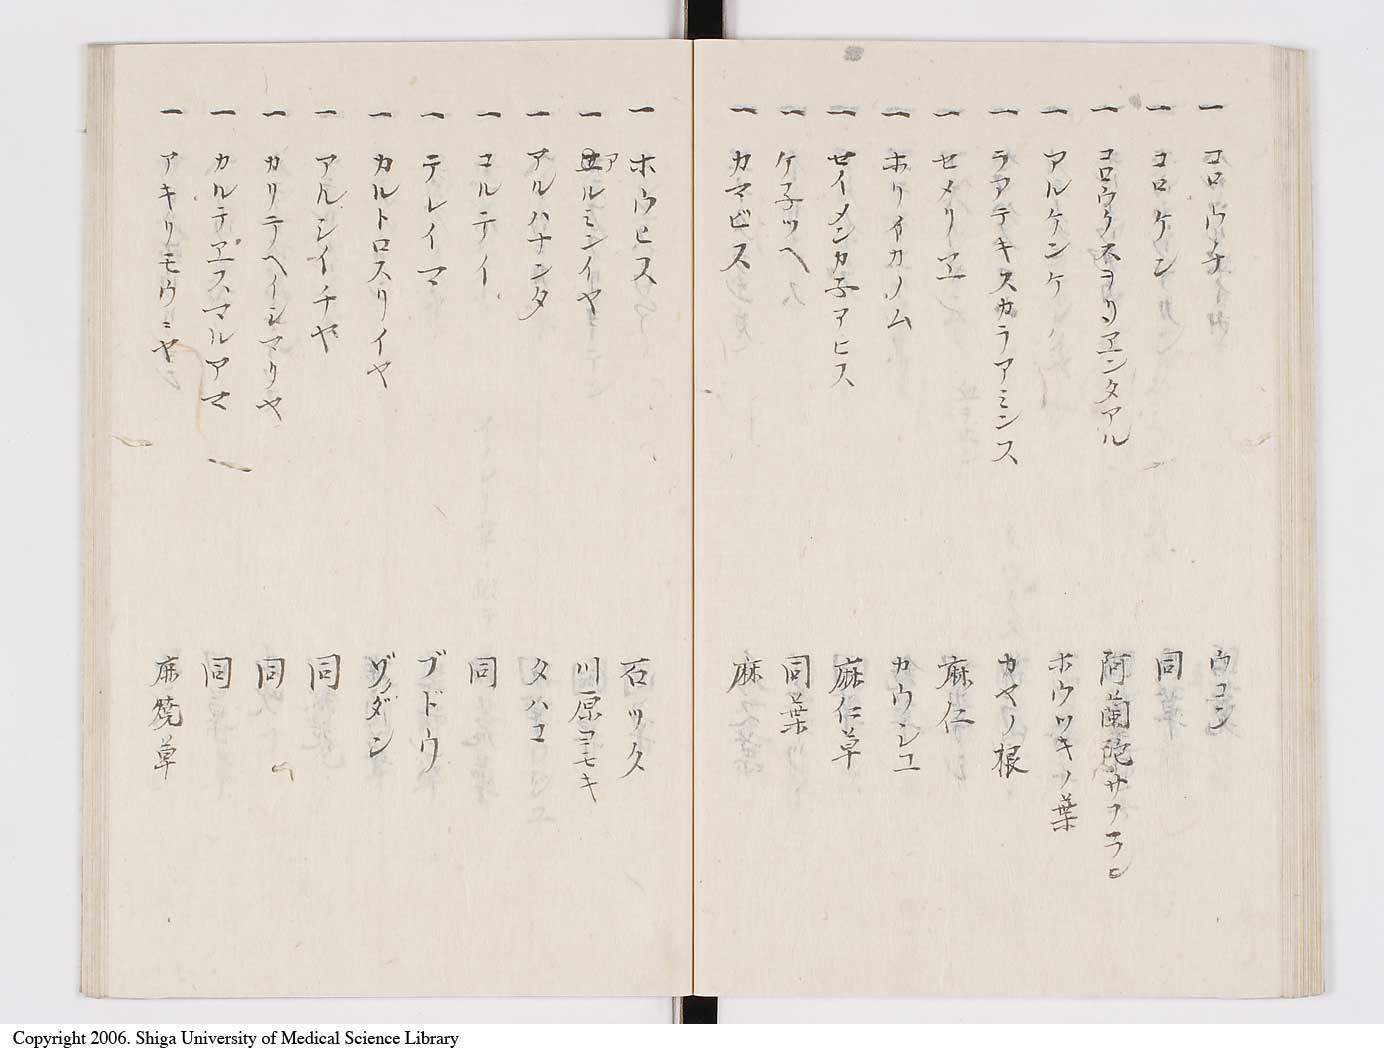 一 コロウチ ウコン
一 コロケン 同
一 コロウケスヲリエンタアル 阿蘭陀サフラン
一 アルケンケ ホウツキノ葉
一 ラアテキスカラアミンス カマノ根
一 セメリヱ 麻仁
一 ホリイカノム カウシユ
一 セイメンカ子アヒス 麻仁草
一 ケ子ツヘ 同葉
一 カマビス 麻
一 ホウヒス 石ツク
一 アルミンイヤ 川原コモキ
一 アルハナンタ タハコ
一 コルテイ 同
一 テレイマ ブドウ
一 カルトロスリイヤ
一 アルシイチヤ 同
一 カリテヘイシマリヤ 同
一 カルテヱスマルアマ 同
一 アキリモウニヤ 麻焼草
Copyright 2006. Shiga University of Medical Science Library